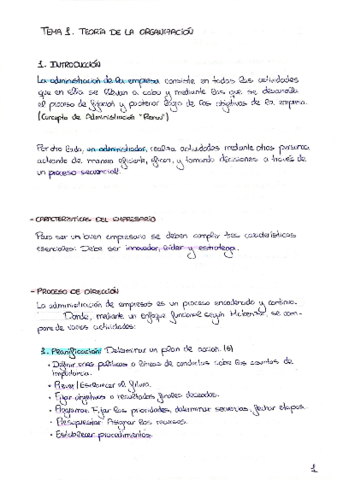 TEMA 1. TEORÍA DE LA ORGANIZACIÓN
1. INTRODUCCIÓN
La administración de la empresa consiste en todas las actividades
que en ella se llevan a cabo y mediante las que se desarrolla
el proceso de fijación y posterior logro de los objetivos de la empresa.
(Concepto de Administración "Planas")
Por otro lado, un administrador, realiza actividades mediante otras personas
actuando de manera eficiente, eficaz, y tomando decisiones a través de
un proceso secuencial.
- CARACTERÍSTICAS DEL EMPRESARIO
Para ser un buen empresario se deben cumplir tres características
esenciales: Debe ser innovador, líder y estratega.
- PROCESO DE DIRECCIÓN
La administración de empresas es un proceso encadenado y continuo.
Donde, mediante un enfoque funcional según se com-
pone de varias actividades:
1. Planificación: Determinar un plan de acción.
• Definir unas políticas o líneas de conductas sobre los asuntos de
importancia.
• Prever/Establecer el futuro.
• Fijar objetivos o resultados finales deseados.
• Programar. Fijar las prioridades, determinar secuencias, fechar etapas.
• Presupuestar. Asignar los recursos.
• Establecer procedimientos.
1